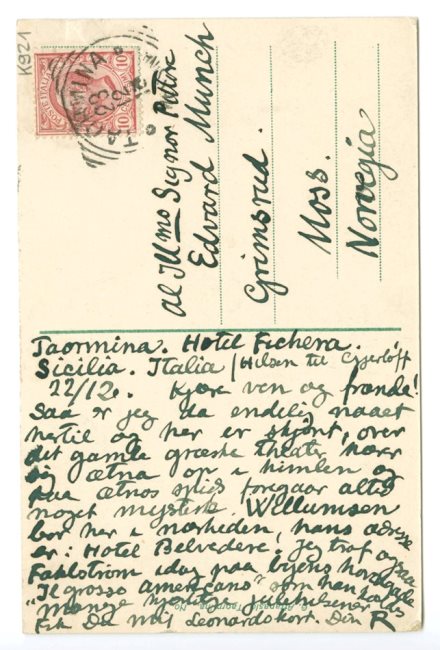 K921
POSTE ITALIANE
10
TAORMINA
al Illmo Signor Pittore
Edvard Munch
Grimsrud.
Moss.
Norvegia
Taormina. Hotel Fichera.
Sicilia. Italia / Hilsen til Gjerløff
22/12. Kjære ven og frænde!
Saa er jeg da endelig naaet
hertil og her er skjønt, over
det gamle græske theater hæver
sig ætna op i himlen og
paa ætnas spids foregaar altid
noget mystisk. Willumsen
bor her i nærheden, hans adresse
er: Hotel Belvedere. Jeg traf ogsaa
Fahlstrøm idag paa byens hovedgade
"Il grosso americano" som han kaldes
mange hjertlige julehilsener
Fik Du mit leonardokort. Din R